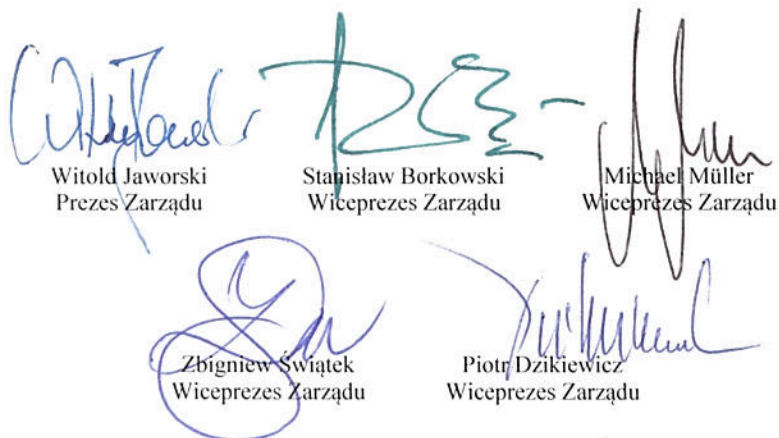 Witold Jaworski
Prezes Zarządu
Stanisław Borkowski
Wiceprezes Zarządu
Michael Müller
Wiceprezes Zarządu
Zbigniew Świątek
Wiceprezes Zarządu
Piotr Dzikiewicz
Wiceprezes Zarządu